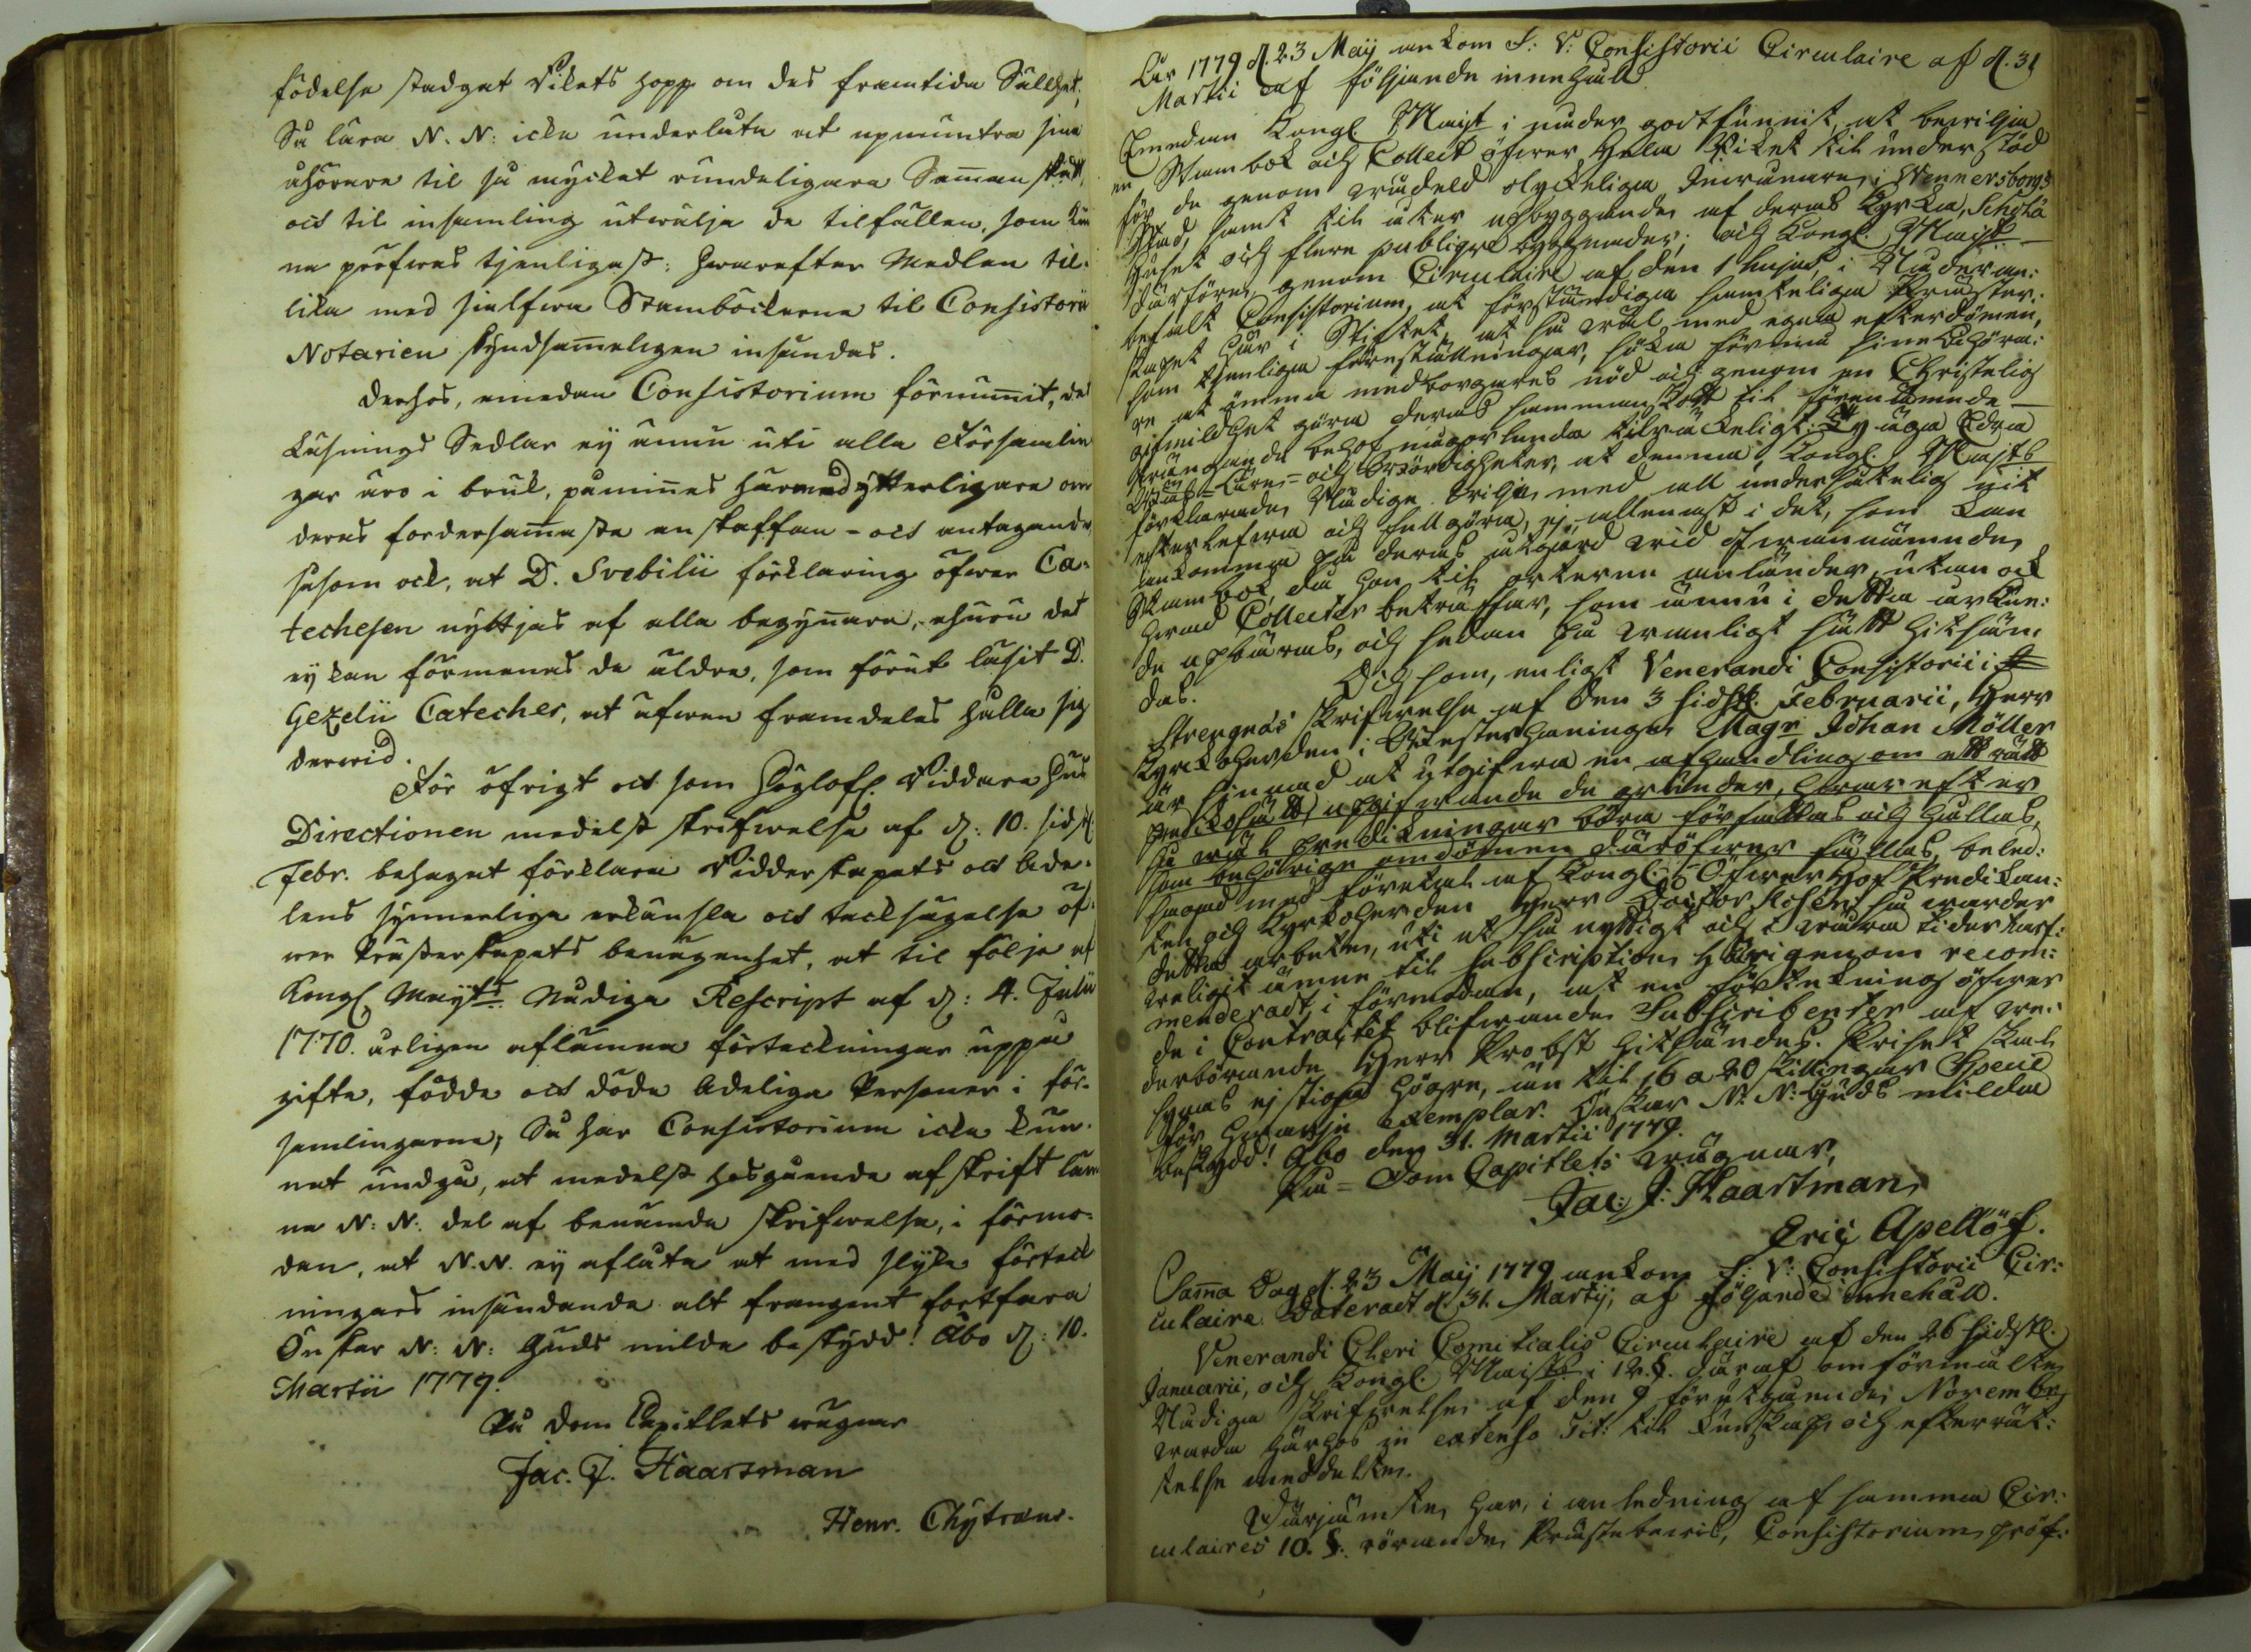 födelse stadgat Rikets hopp om des framtida Sällhet;
Så lära N. N: icke underlåta at upmuntra sina
åhörare til så myckat rundeligare Samanskått,
och til insamling utwälja de tilfällen, som kun
na pröfwas tjenligast: hwarefter Medlen til-
lika med sielfwa Stamböckerna til Consistorii
Notarien skyndsameligen insändas.
Derhos, emedan Consistorium förnummit, at
Läsnings Sedlar ej ännu uti alla Församlin
gar äro i bruk, påmines härmed ytterligare om
deras fordersammaste anskaffan- och antagande,
såsom ock, at D. Svebilii förklaring öfwer Ca-
techesen nyttjas af alla begynnare, ehuru det
ej kan förmenas de äldre, som förut läsit D.
Gezelii Cateches, at äfwen framdeles hålla sig
derwid.
För öfrigt och som Höglofl. Riddare Hus
Directionen medelst skrifwelse af d: 10. sidstl.
Febr. behagat förklara Ridderskapets och Ade-
lens synnerliga erkänsla och tacksägelse öf-
wer Prästerskapets benägenhet, at til följe af
Kongl. Mayts Nådiga Rescript af d: 4. Julii
1770. årligen aflämna förteckningar uppå
gifte, födde och döde Adeliga Personer i för-
samlingarna; Så har Consistorium icke kun-
nat undgå, at medelst hosgående afskrift läm
na N: N: del af benämda skrifwelse, i förmo-
dan, at N. N. ej aflåta at med slika förteck
ningars insändande alt framgent fortfara
Önskar N: N: Guds milda beskydd! Åbo d: 10.
Martii 1779.
På Dom Capitlets wägnar
Jac. J. Haartman
Henr. Chytræus.
Åhr 1779 d. 23 Maij ankom S: V: Consistorii Circulaire af d. 31
Martii af följande innehåll
Emedan Kongl. Mayst i nåder godtfunnit, at bewilja
en Stambok och Collect öfwer hela Riket til understöd
för de genom wådeld olyckeliga Inwånare i Wennersborgs
Stad, samt til åter upbyggande af deras Kyrka, Schola
huset och flere publique byggnader; och Kongl. Mayst
därföre genom Circulaire af den 1 hujus, i Nåder an-
befalt Consistorium, at förständiga samteliga Präster-
skapet här i Stiftet, at så wäl med egna efterdömen,
som tjenliga föreställningar, söka förmå sine Åhöra-
re at ömma medborgares nöd och genom en Christelig
gifmildhet göra deras sammanskott til förenämnde
trängande behof någorlunda tilräckeligt: Ty äga Edra
Wäl-Lärn- och Wördigheter, at denna Kongl. Majts
förklarade Nådige wilja med all undersåtelig nit
efterlefwa och fullgöra, ej allenast i det, som kan
ankomma på deras åtgärd wid ofwannämnde
Stambok, då han til orterne anländer, utan ock
hwad Collecter beträffar, som ännu i detta år kun-
de upbäras, och sedan på wanligt sätt hitsän-
das. Och som, enligt Venerandi Consistorii i
Strengnäs skrifwelse af den 3 sidstl. Februarii, Herr
Kyrckoherden i Westerhaninge Magr Johan Möller
är sinnad at utgifwa en afhandling om ett rätt
prediksätt, upgifwande de grunder, hwarefter
så wäl predikningar böra författas och hållas,
som behörige omdömen däröfwer fällas, beled-
sagad med företal af Kongl. Öfwer Hof Predikan-
ten och Kyrkoherden Herr Doctor Rosen; så warder
detta arbete, uti et så nyttigt och i wåra tider hast-
weligit ämne til subscription härigenom recom-
menderadt, i förmodan, at en förteckning öfwer
de i Contractet blifwande Subscribenter af we-
derbörande Herr Probst hitsändes. Priset skal
synas ej stiga högre, än til 16 a 20 skillingar Specie
för hwarje exemplar. Önskar N. N: Guds milda
beskydd! Åbo den 31. Martii 1779.
På Dom Capitlets wägnar,
Jac: J: Haartman
Eric Apellöf.
Sama Dag d. 23 Maij 1779 ankom S: V: Consistorii Cir-
culaire Dateradt d 31. Martij, af följande innehåll.
Venerandi Cleri Comitialis Circulaire af den 26 sidstl.
Januarii, och Kongl. Maists i 12. §. däraf omförmälte
Nådiga skrifwelse af den 9 förutgående Novembr.
warda härhos in extenso Tit: til kunskap och efterrät-
telse meddelte.
Därjämte har, i anledning af samma Cir-
culaires 10. §. rörande Prästebewis, Consistorium pröf-